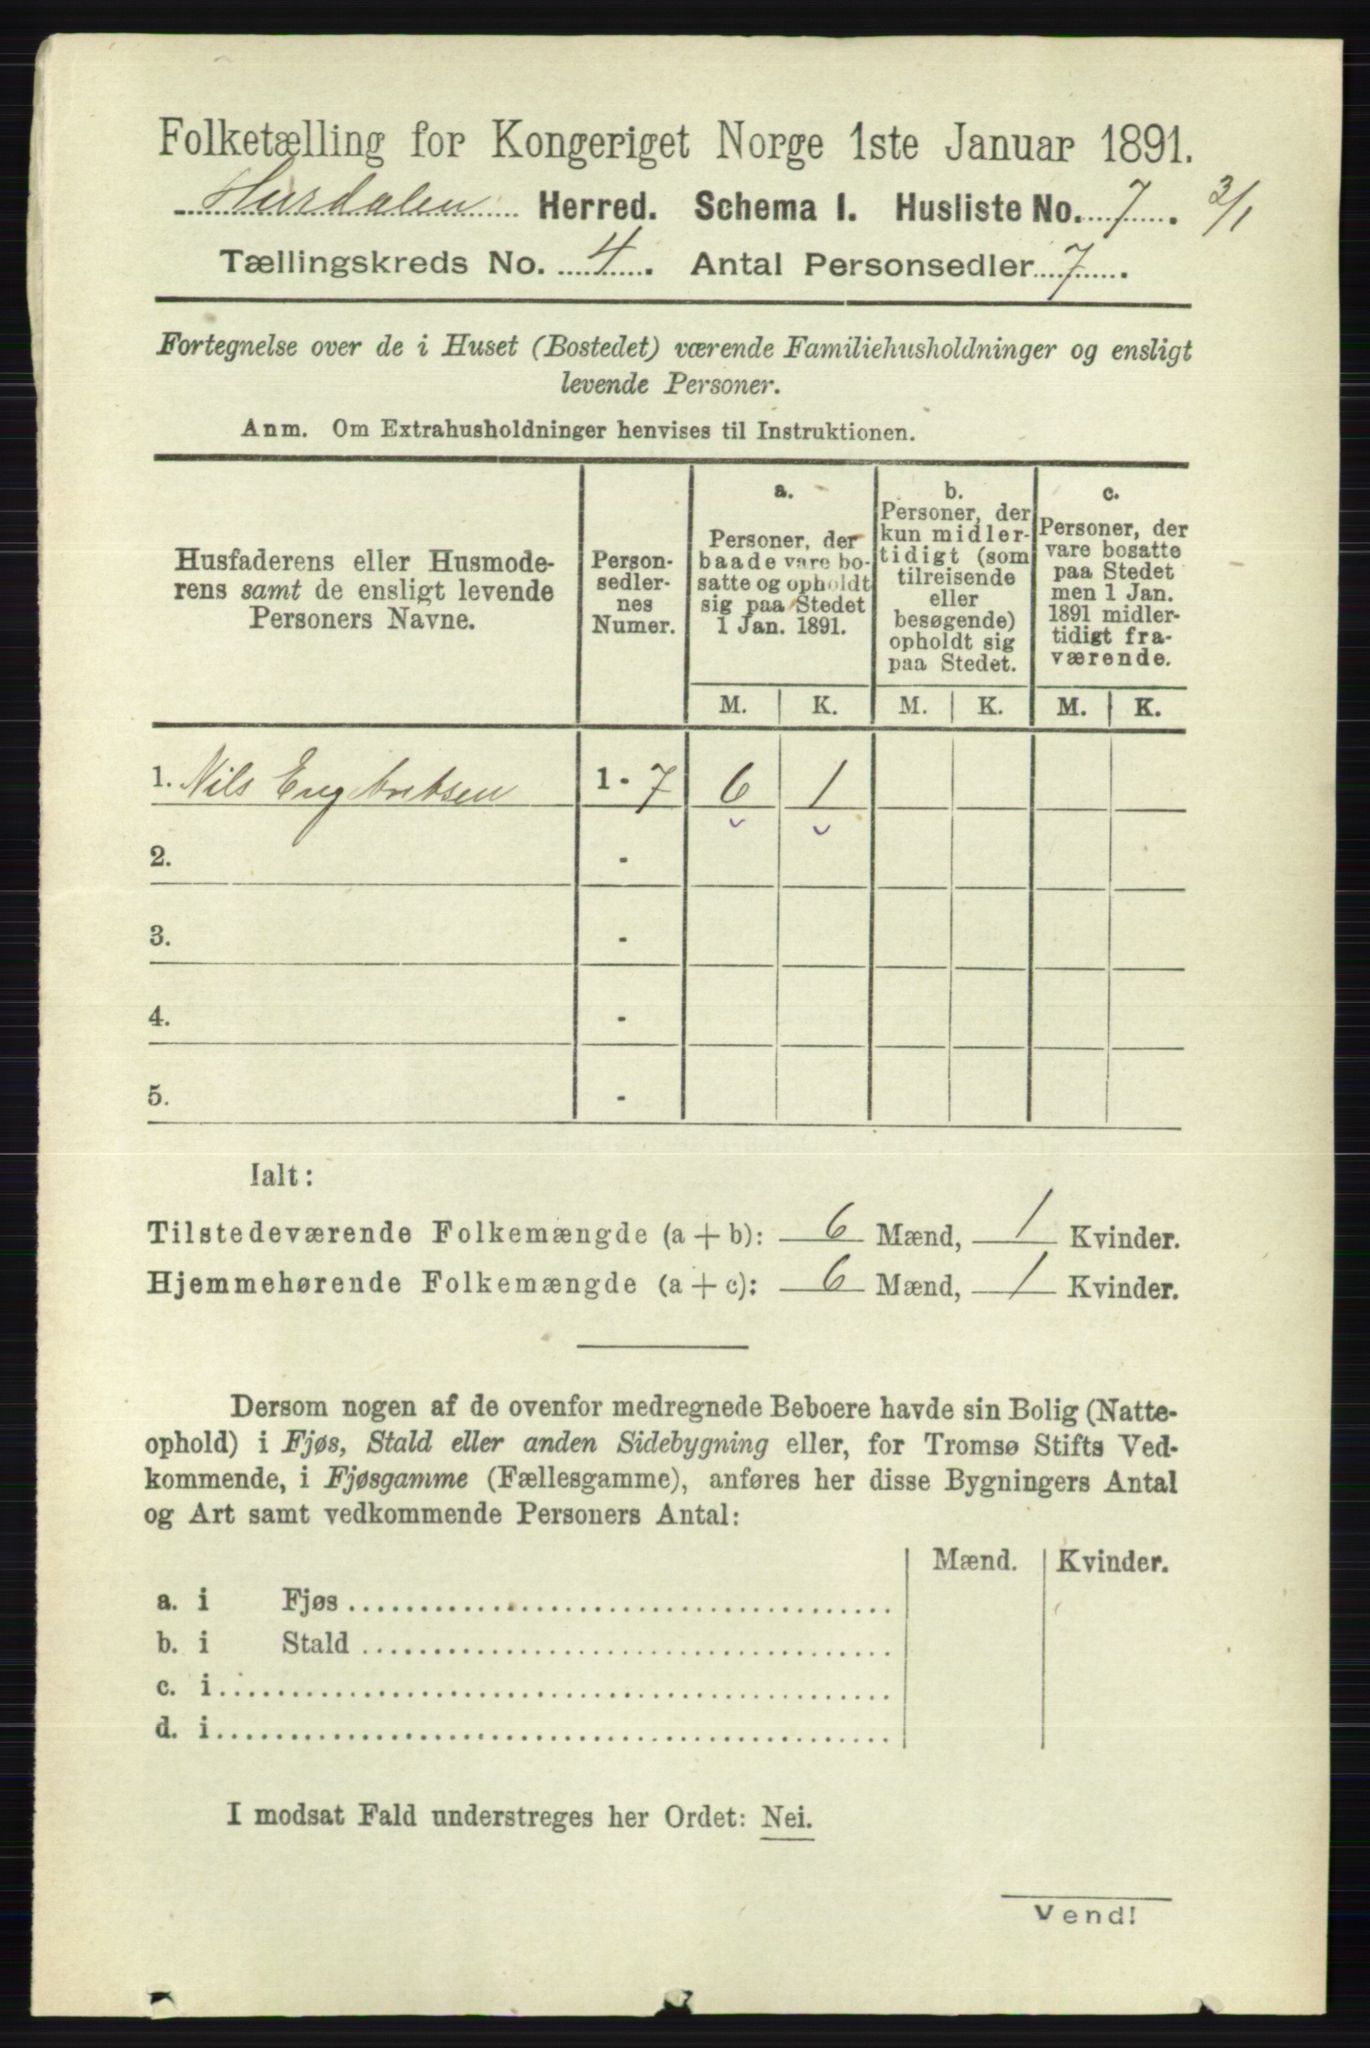 Folketælling for Kongeriget Norge 1ste Januar 1891.
Hurdalen Herred. Schema I. Husliste No. 7. 3/1
Tællingskreds No. 4. Antal Personsedler 7.
Fortegnelse over de i Huset (Bostedet) værende Familiehusholdninger og ensligt
levende Personer.
Anm. Om Extrahusholdninger henvises til Instruktionen.
Husfaderens eller Husmode-
rens samt de ensligt levende
Personers Navne.
Person-
sedler-
nes
Numer.
a.
Personer, der
baade vare bo-
satte og opholdt
sig paa Stedet
1 Jan. 1891.
b.
Personer, der
kun midler-
tidigt (som
tilreisende
eller
besøgende)
opholdt sig
paa Stedet.
c.
Personer, der
vare bosatte
paa Stedet
men 1 Jan.
1891 midler-
tidigt fra-
værende.
M. K. M. K. M. K.
1. Nils Engebretsen 1 - 7 6 1
2. -
3. -
4. -
5. -
Ialt:
Tilstedeværende Folkemængde (a + b): 6 Mænd, 1 Kvinder.
Hjemmehørende Folkemængde (a + c): 6 Mænd, 1 Kvinder.
Dersom nogen af de ovenfor medregnede Beboere havde sin Bolig (Natte-
ophold) i Fjøs, Stald eller anden Sidebygning eller, for Tromsø Stifts Ved-
kommende, i Fjøsgamme (Fællesgamme), anføres her disse Bygningers Antal
og Art samt vedkommende Personers Antal:
Mænd. Kvinder.
a. i Fjøs
b. i Stald
c. i
d. i
I modsat Fald understreges her Ordet: Nei.
Vend!